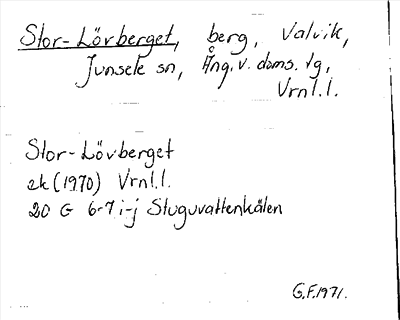 Stor-Lövberget, berg, Valvik,
Junsele sn, Ång.v. doms. tg,
Vrnl.l.
Stor-Lövberget
ek (1970) Vrnl.l.
20 G 6-7 i-j Stuguvattenkälen
G.F. 1971.